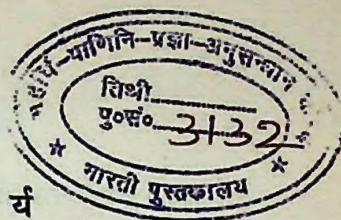 महर्षि-पाणिनि-प्रज्ञा-अनुसन्धान
तिथी
पु०सं० 3132
भारती पुस्तकालय
र्य